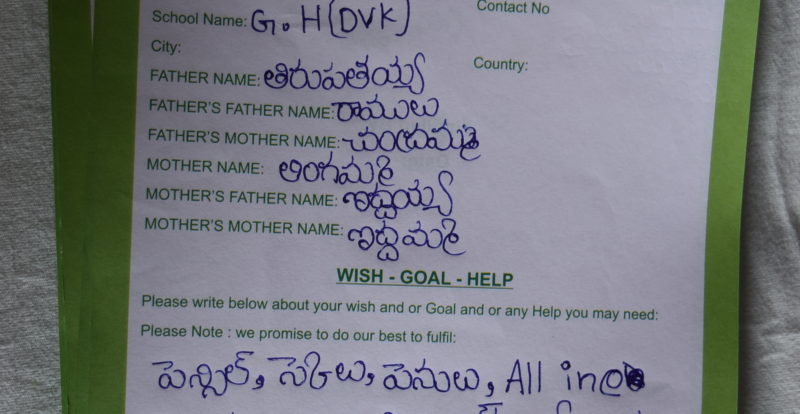 School Name: G. H (DVK) Contact No
City: Country:
FATHER NAME: తిరుపతయ్య
FATHER'S FATHER NAME: రాములు
FATHER'S MOTHER NAME: చంద్రమ్మ
MOTHER NAME: లింగమ్మ
MOTHER'S FATHER NAME: ఈద్దయ్య
MOTHER'S MOTHER NAME: ఈద్దమ్మ
WISH - GOAL - HELP
Please write below about your wish and or Goal and or any Help you may need:
Please Note : we promise to do our best to fulfil:
పెన్సిల్, స్కేలు, పెనులు, All in